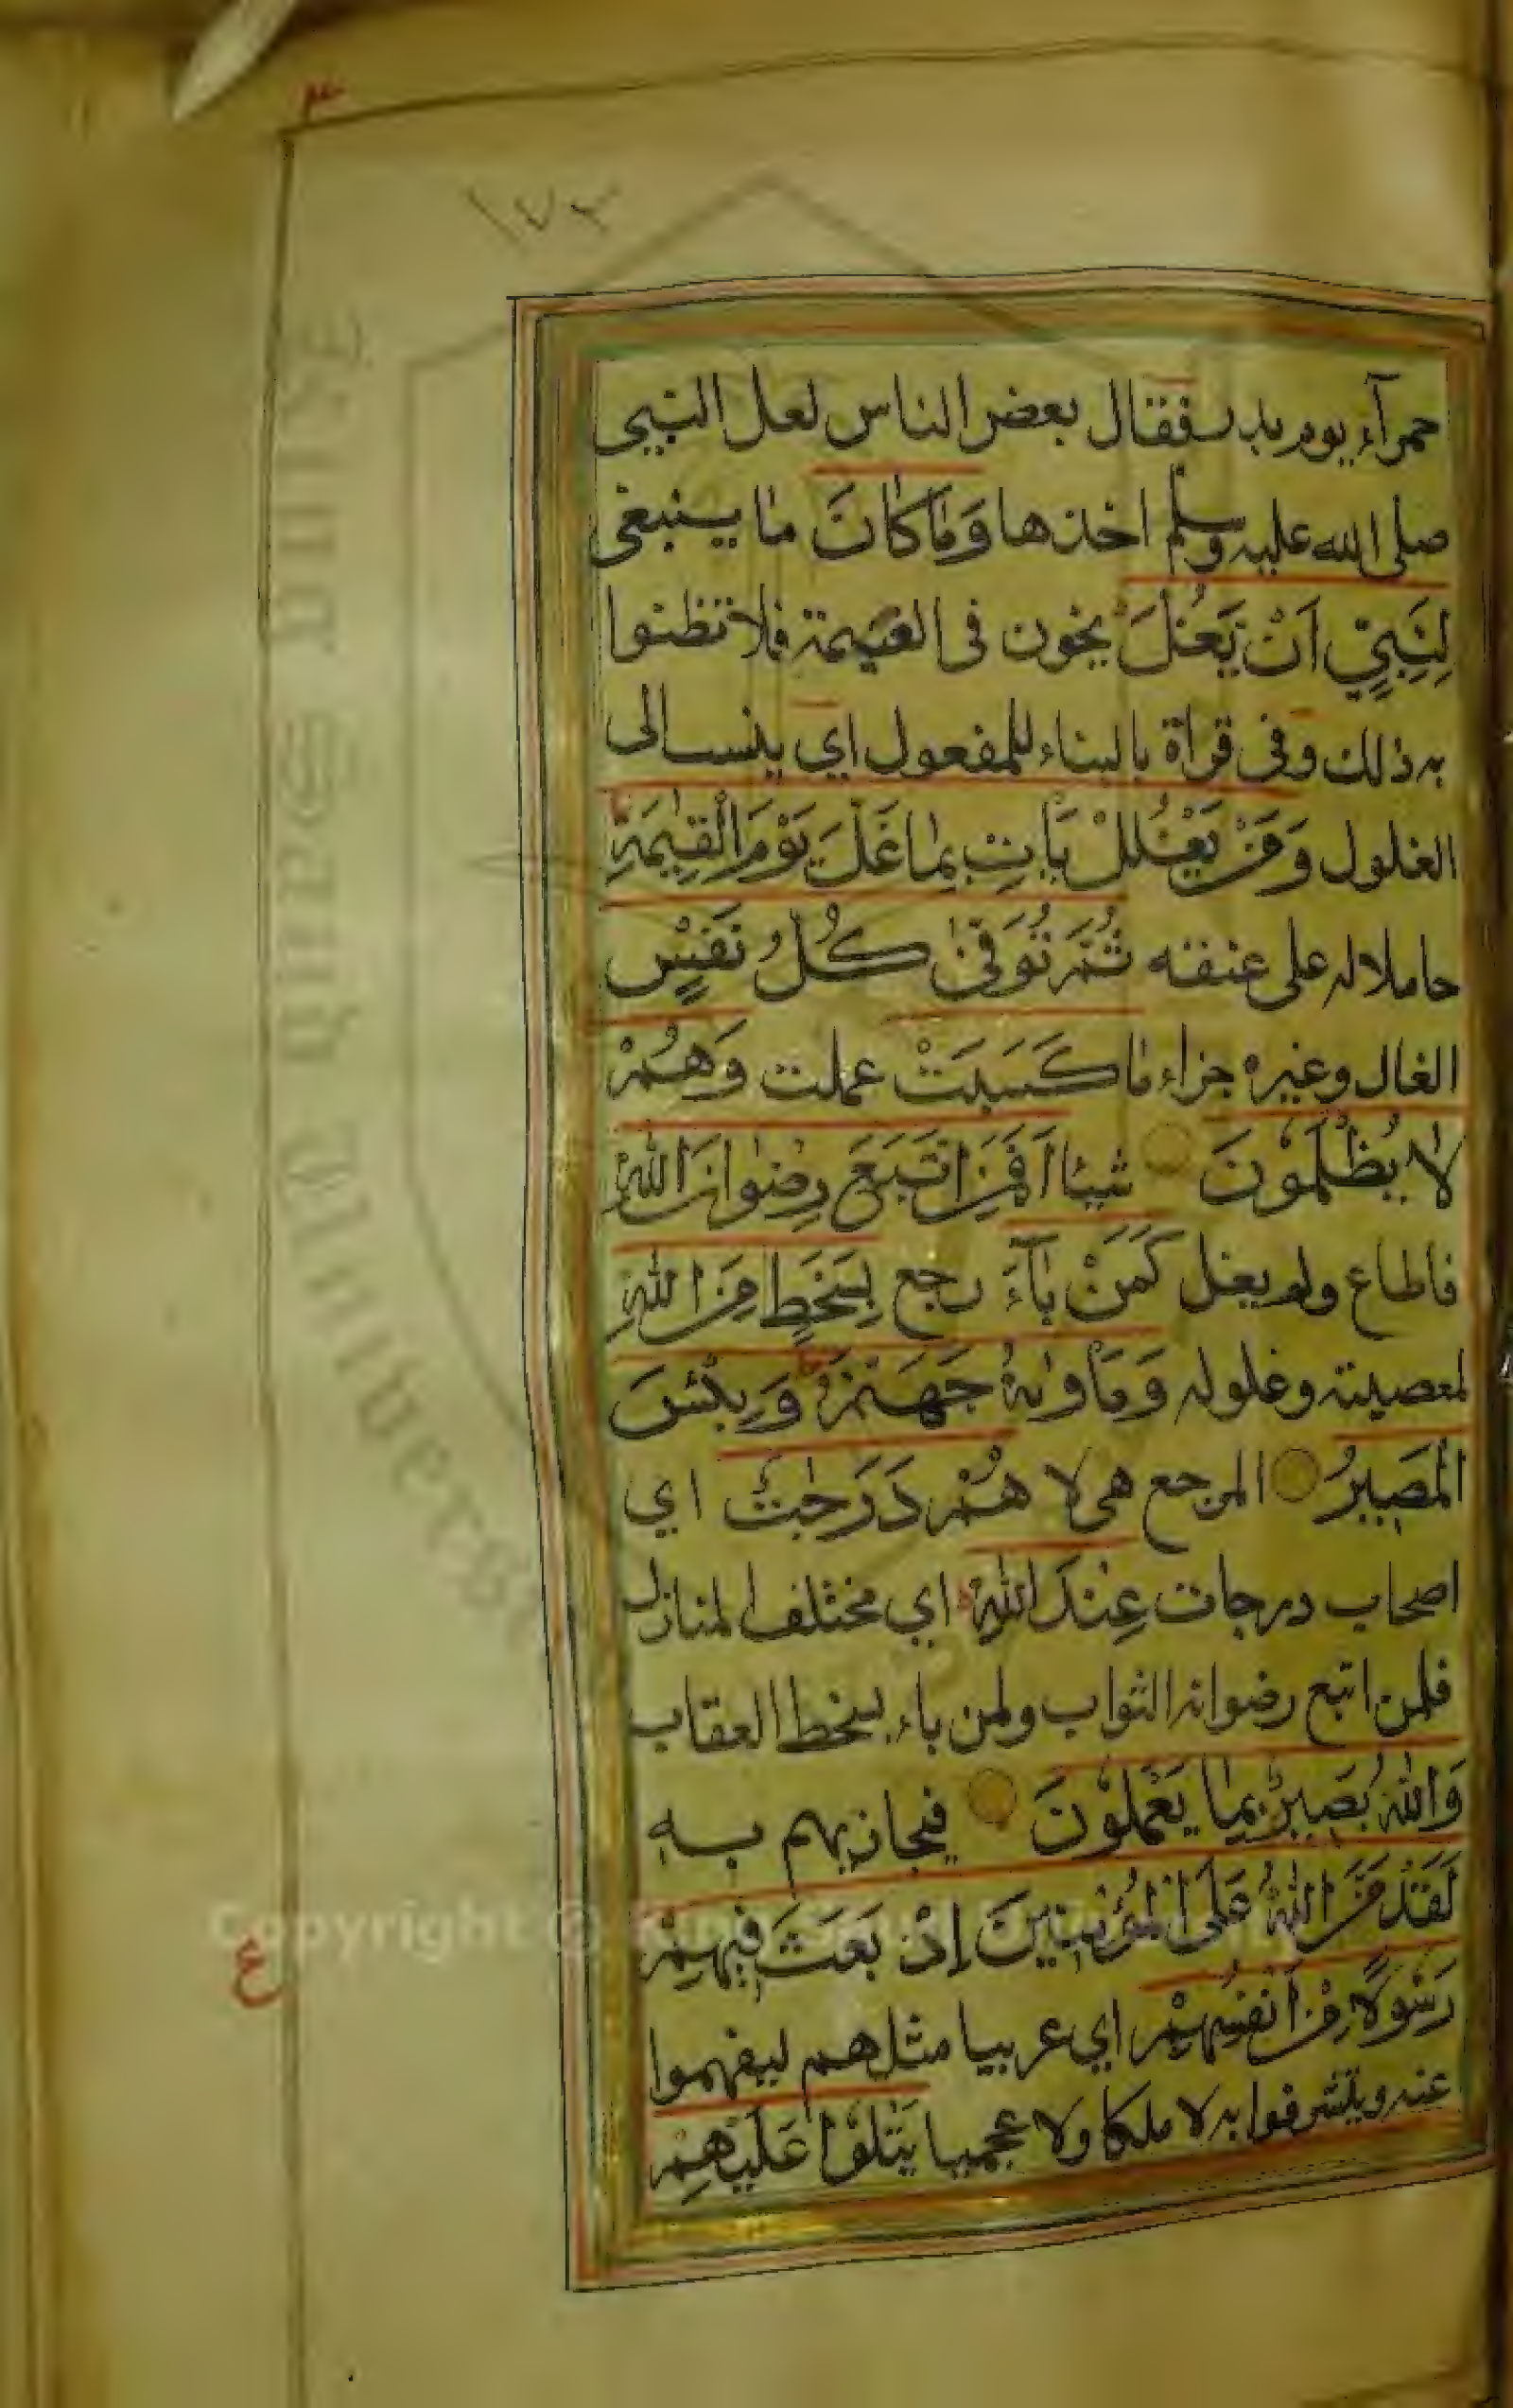 ١٧٢
حمرآء يوم بدر فقال بعض الناس لعل النبي
صلى الله عليه وسلم اخذها وَمَا كَانَ ما ينبغي
لِنَبِيٍّ اَنْ يَغُلَّ يخون في الغنيمة فلا تظنوا
به ذلك وفي قراة بالبناء للمفعول اي ينسب الى
الغلول وَمَنْ يَغْلُلْ يَاْتِ بِمَا غَلَّ يَوْمَ الْقِيٰمَةِ
حاملا له على عنقه ثُمَّ تُوَفّٰى كُلُّ نَفْسٍ
الغال وغيره جزاء مَا كَسَبَتْ عملت وَهُمْ
لَا يُظْلَمُوْنَ شيئا اَفَمَنِ اتَّبَعَ رِضْوَانَ اللّٰهِ
فاطاع ولم يغل كَمَنْ بَآءَ رجع بِسَخَطٍ مِّنَ اللّٰهِ
لمعصيته وغلوله وَمَاْوٰىهُ جَهَنَّمُ وَبِئْسَ
الْمَصِيْرُ المرجع هي لا هُمْ دَرَجٰتٌ اي
اصحاب درجات عِنْدَ اللّٰهِ اي مختلفوا لمنازل
فلمن اتبع رضوانه الثواب ولمن باء بسخط العقاب
وَاللّٰهُ بَصِيْرٌ بِمَا يَعْمَلُوْنَ فيجازيهم به
لَقَدْ مَنَّ اللّٰهُ عَلَى الْمُؤْمِنِيْنَ اِذْ بَعَثَ فِيْهِمْ
رَسُوْلًا مِّنْ اَنْفُسِهِمْ اي عربيا مثلهم ليفهموا
عنه ويتشرفوا به لا ملكا ولا عجميا يَتْلُوْا عَلَيْهِمْ
ع
Copyright ©